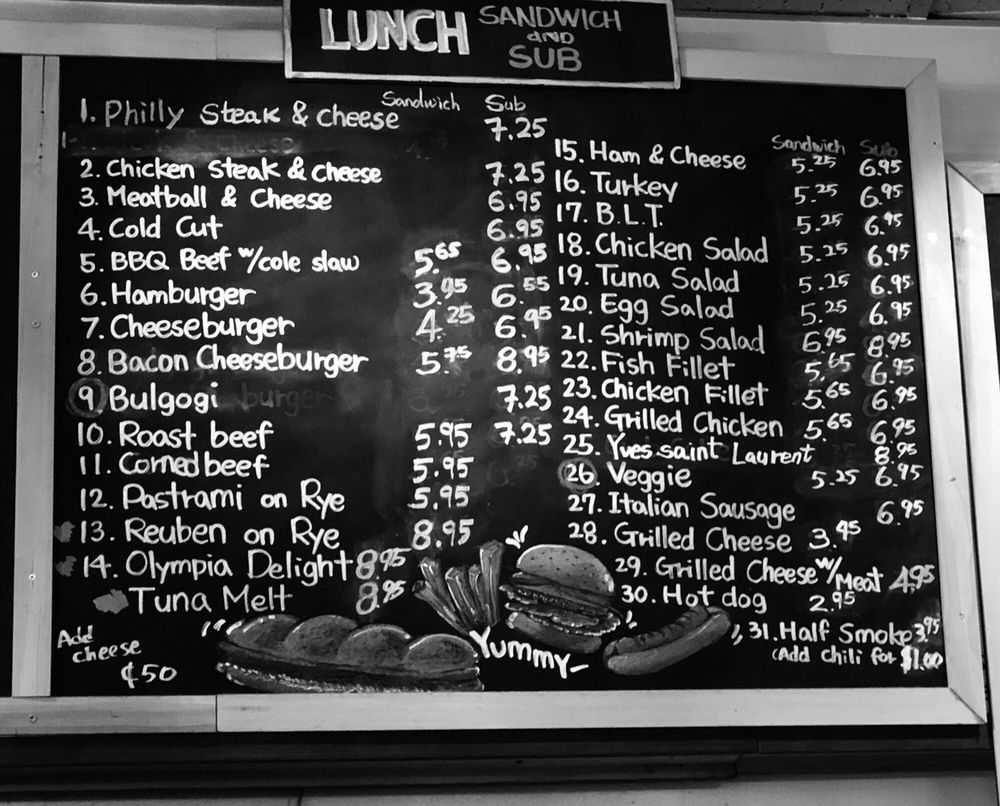 LUNCH SANDWICH
AND
SUB
Sandwich Sub
1. Philly Steak & cheese 7.25
2. Chicken steak & cheese 7.25
3. Meatball & Cheese 6.95
4. Cold Cut 6.95
5. BBQ Beef w/cole slaw 5.65 6.95
6. Hamburger 3.95 6.55
7. Cheeseburger 4.25 6.95
8. Bacon Cheeseburger 5.75 8.95
9 Bulgogi 7.25
10. Roast beef 5.95 7.25
11. Corned beef 5.95
12. Pastrami on Rye 5.95
13. Reuben on Rye 8.95
14. Olympia Delight 8.95
Tuna Melt 8.95
Add
cheese
¢50
Sandwich Sub
15. Ham & Cheese 5.25 6.95
16. Turkey 5.25 6.95
17. B.L.T. 5.25 6.95
18. Chicken Salad 5.25 6.95
19. Tuna Salad 5.25 6.95
20. Egg Salad 5.25 6.95
21. Shrimp Salad 6.95 8.95
22. Fish Fillet 5.65 6.95
23. Chicken Fillet 5.65 6.95
24. Grilled Chicken 5.65 6.95
25. Yves saint Laurent 8.95
26. Veggie 5.25 6.95
27. Italian Sausage 6.95
28. Grilled Cheese 3.95
29. Grilled Cheese w/Meat 4.95
30. Hot dog 2.95
31. Half Smoke 3.95
(Add chili for $1.00
Yummy~